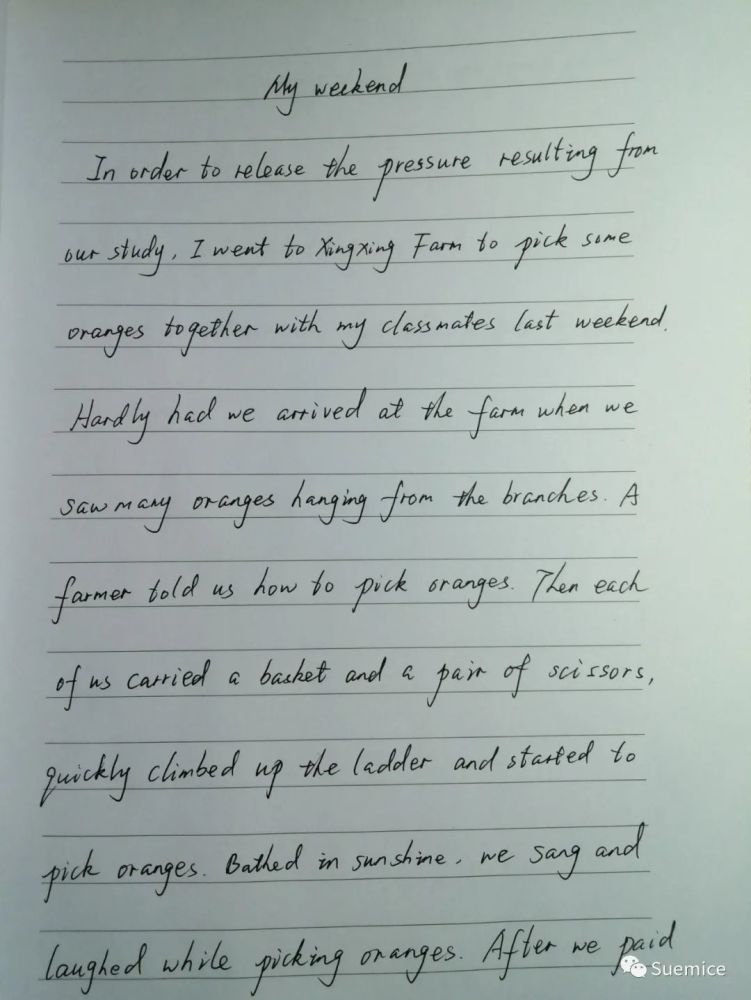 My weekend
In order to release the pressure resulting from
our study, I went to Xingxing Farm to pick some
oranges together with my classmates last weekend.
Hardly had we arrived at the farm when we
saw many oranges hanging from the branches. A
farmer told us how to pick oranges. Then each
of us carried a basket and a pair of scissors,
quickly climbed up the ladder and started to
pick oranges. Bathed in sunshine, we sang and
laughed while picking oranges. After we paid
Suemice